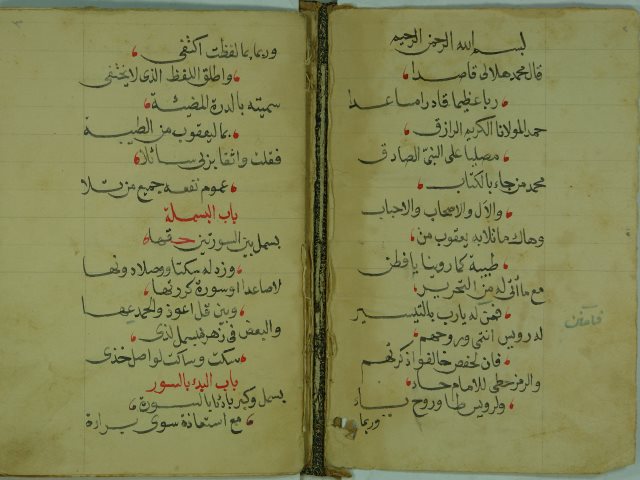 بسم الله الرحمن الرحيم
قال محمد هلالى قاصدا
ربا عظيما قاهرا ماعدا
حمد المولانا الكريم الرازق
مصليا على النبي الصادق
محمد من جاء بالكتاب
والآل والاصحاب والاحباب
وهاك ما تلا به يعقوب من
طيبة كما روينا يا فطن
مع ما أتى له من التحرير
فمن له يارب بالتيسير
له رويس انتمى وروحهم
فان لحفص خالفوا ذكرتهم
والرمز حطى للامام حاء
ولرويس طا وروح ياء
وربما
وربما بما لفظت اكتفى
واطلق اللفظ الذى لا يختفى
سميته بالدرة المضيئة
بما ليعقوب من الطيبة
فقلت واثقا بربى سائلا
عموم نفعه جميع من تلا
باب البسملة
بسمل بين السورتين حقها
وزد له سكتا ووصلا ونها
لا صاعدا او سورة كررتها
وبين قل اعوذ والحمد عها
والبعض فى زهر فبسمل لذى
سكت وساكت لواصل خذى
باب البدء بالسور
بسمل وكبر باد‌ئا بالسورة
مع استعاذة سوى براءة